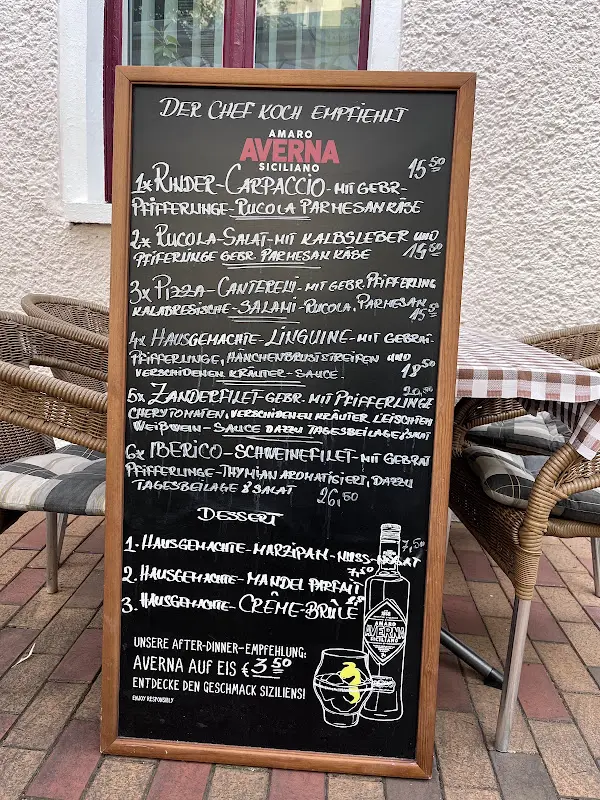 DER CHEF KOCH EMPFIEHLT
AMARO
AVERNA
SICILIANO
15,50
1x RINDER-CARPACCIO-MIT GEBR-
PFIFFERLINGE-RUCOLA PARMESAN KÄSE
2x RUCOLA-SALAT-MIT KALBSLEBER UND
PFIFFERLINGE GEBR. PARMESAN KÄSE
3x PIZZA-CANTERELI-MIT GEBR. PFIFFERLING
KALABRESISCHE-SALAMI-RUCOLA, PARMESAN
15,50
4x HAUSGEMACHTE-LINGUINE-MIT GEBRAT
PFIFFERLINGE, HÄNCHENBRUSTSTREIFEN UND
VERSCHIDENEN KRÄUTER-SAUCE. 18,50
5x ZANDERFILET-GEBR. MIT PFIFFERLINGE
CHERYTOMATEN, VERSCHIDENEN KRÄUTER LEISCHTEN
WEIßWEIN-SAUCE DAZZU TAGESBEILAGE, SALAT
6x IBERICO-SCHWEINEFILET-MIT GEBRAT
PFIFFERLINGE-THYMIAN AROMATISIERT, DAZZU
TAGESBEILAGE & SALAT 26,50
DESSERT
1. HAUSGEMACHTE-MARZIPAN-NUSS- 7,50
2. HAUSGEMACHTE-MANDEL PARFAIT 7,50
3. HAUSGEMACHTE-CRÊME-BRÛLE
AMARO
AVERNA
SICILIANO
UNSERE AFTER-DINNER-EMPFEHLUNG:
AVERNA AUF EIS € 3,50
ENTDECKE DEN GESCHMACK SIZILIENS!
ENJOY RESPONSIBLY